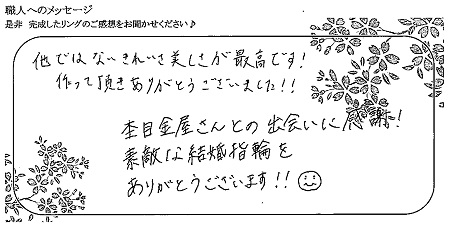 職人へのメッセージ
是非 完成したリングのご感想をお聞かせください♪
他ではないきれいさ美しさが最高です!
作って頂きありがとうございました!!
杢目金屋さんとの出会いに感謝!
素敵な結婚指輪を
ありがとうございます!!